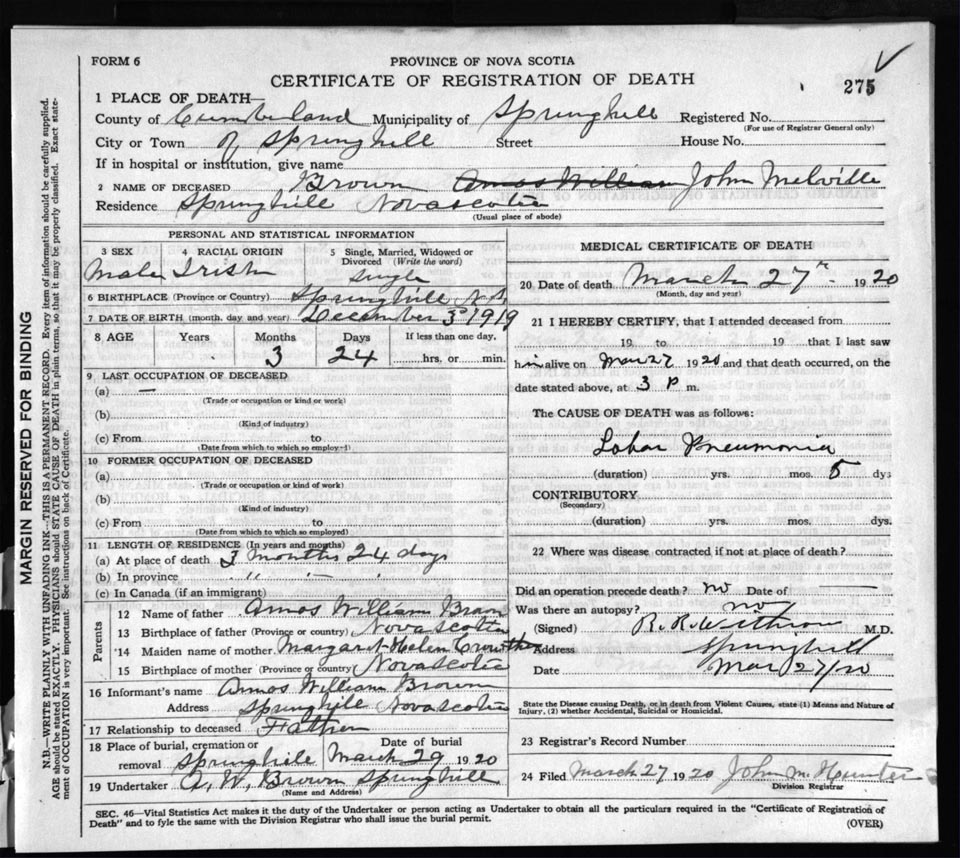 FORM 6
PROVINCE OF NOVA SCOTIA
CERTIFICATE OF REGISTRATION OF DEATH
275
1 PLACE OF DEATH—
County of Cumberland Municipality of Springhill Registered No.
(For use of Registrar General only)
City or Town of Springhill Street House No.
If in hospital or institution, give name
2 NAME OF DECEASED Brown Amos William John Melville
Residence Springhill Nova scotia
(Usual place of abode)
PERSONAL AND STATISTICAL INFORMATION
3 SEX 4 RACIAL ORIGIN 5 Single, Married, Widowed or Divorced (Write the word)
Male Irish Single
6 BIRTHPLACE (Province or Country) Springhill N.S.
7 DATE OF BIRTH (month, day and year) December 3 1919
8 AGE Years Months Days If less than one day,
3 24 hrs. or min.
9 LAST OCCUPATION OF DECEASED
(a) —
(Trade or occupation or kind or work)
(b)
(Kind of industry)
(c) From to
(Date from which to which so employed)
10 FORMER OCCUPATION OF DECEASED
(a)
(Trade or occupation or kind of work)
(b)
(Kind of industry)
(c) From to
(Date from which to which so employed)
11 LENGTH OF RESIDENCE (In years and months)
(a) At place of death 3 months 24 days
(b) In province " — "
(c) In Canada (if an immigrant)
Parents
12 Name of father Amos William Brown
13 Birthplace of father (Province or country) Nova scotia
14 Maiden name of mother Margaret Helen
15 Birthplace of mother (Province or country) Nova scotia
16 Informant's name Amos William Brown
Address Springhill Nova scotia
17 Relationship to deceased Father
18 Place of burial, cremation or removal Springhill Date of burial March 29 1920
19 Undertaker A. W. Brown Springhill
(Name and Address)
MEDICAL CERTIFICATE OF DEATH
20 Date of death March 27th 1920
(Month, day and year)
21 I HEREBY CERTIFY, that I attended deceased from
19 to 19 that I last saw
him alive on Mar 27 1920 and that death occurred, on the
date stated above, at 3 P m.
The CAUSE OF DEATH was as follows:
Lobar Pneumonia
(duration) yrs. mos. 5 dys
CONTRIBUTORY
(Secondary)
(duration) yrs. mos. dys.
22 Where was disease contracted if not at place of death?
Did an operation precede death? no Date of —
Was there an autopsy? no
(Signed) R. R. Withrow M.D.
Address Springhill
Date Mar 27/20
State the Disease causing Death, or in death from Violent Causes, state (1) Means and Nature of
Injury, (2) whether Accidental, Suicidal or Homicidal.
23 Registrar's Record Number
24 Filed March 27 1920 John M. Hunter
Division Registrar
SEC. 46—Vital Statistics Act makes it the duty of the Undertaker or person acting as Undertaker to obtain all the particulars required in the "Certificate of Registration of
Death" and to fyle the same with the Division Registrar who shall issue the burial permit.
(OVER)
MARGIN RESERVED FOR BINDING
N.B.—WRITE PLAINLY, WITH UNFADING INK—THIS IS A PERMANENT RECORD. Every item of information should be carefully supplied.
AGE should be stated EXACTLY. PHYSICIANS should STATE CAUSE OF DEATH in plain terms, so that it may be properly classified. Exact state-
ment of OCCUPATION is very important. See instructions on back of Certificate.